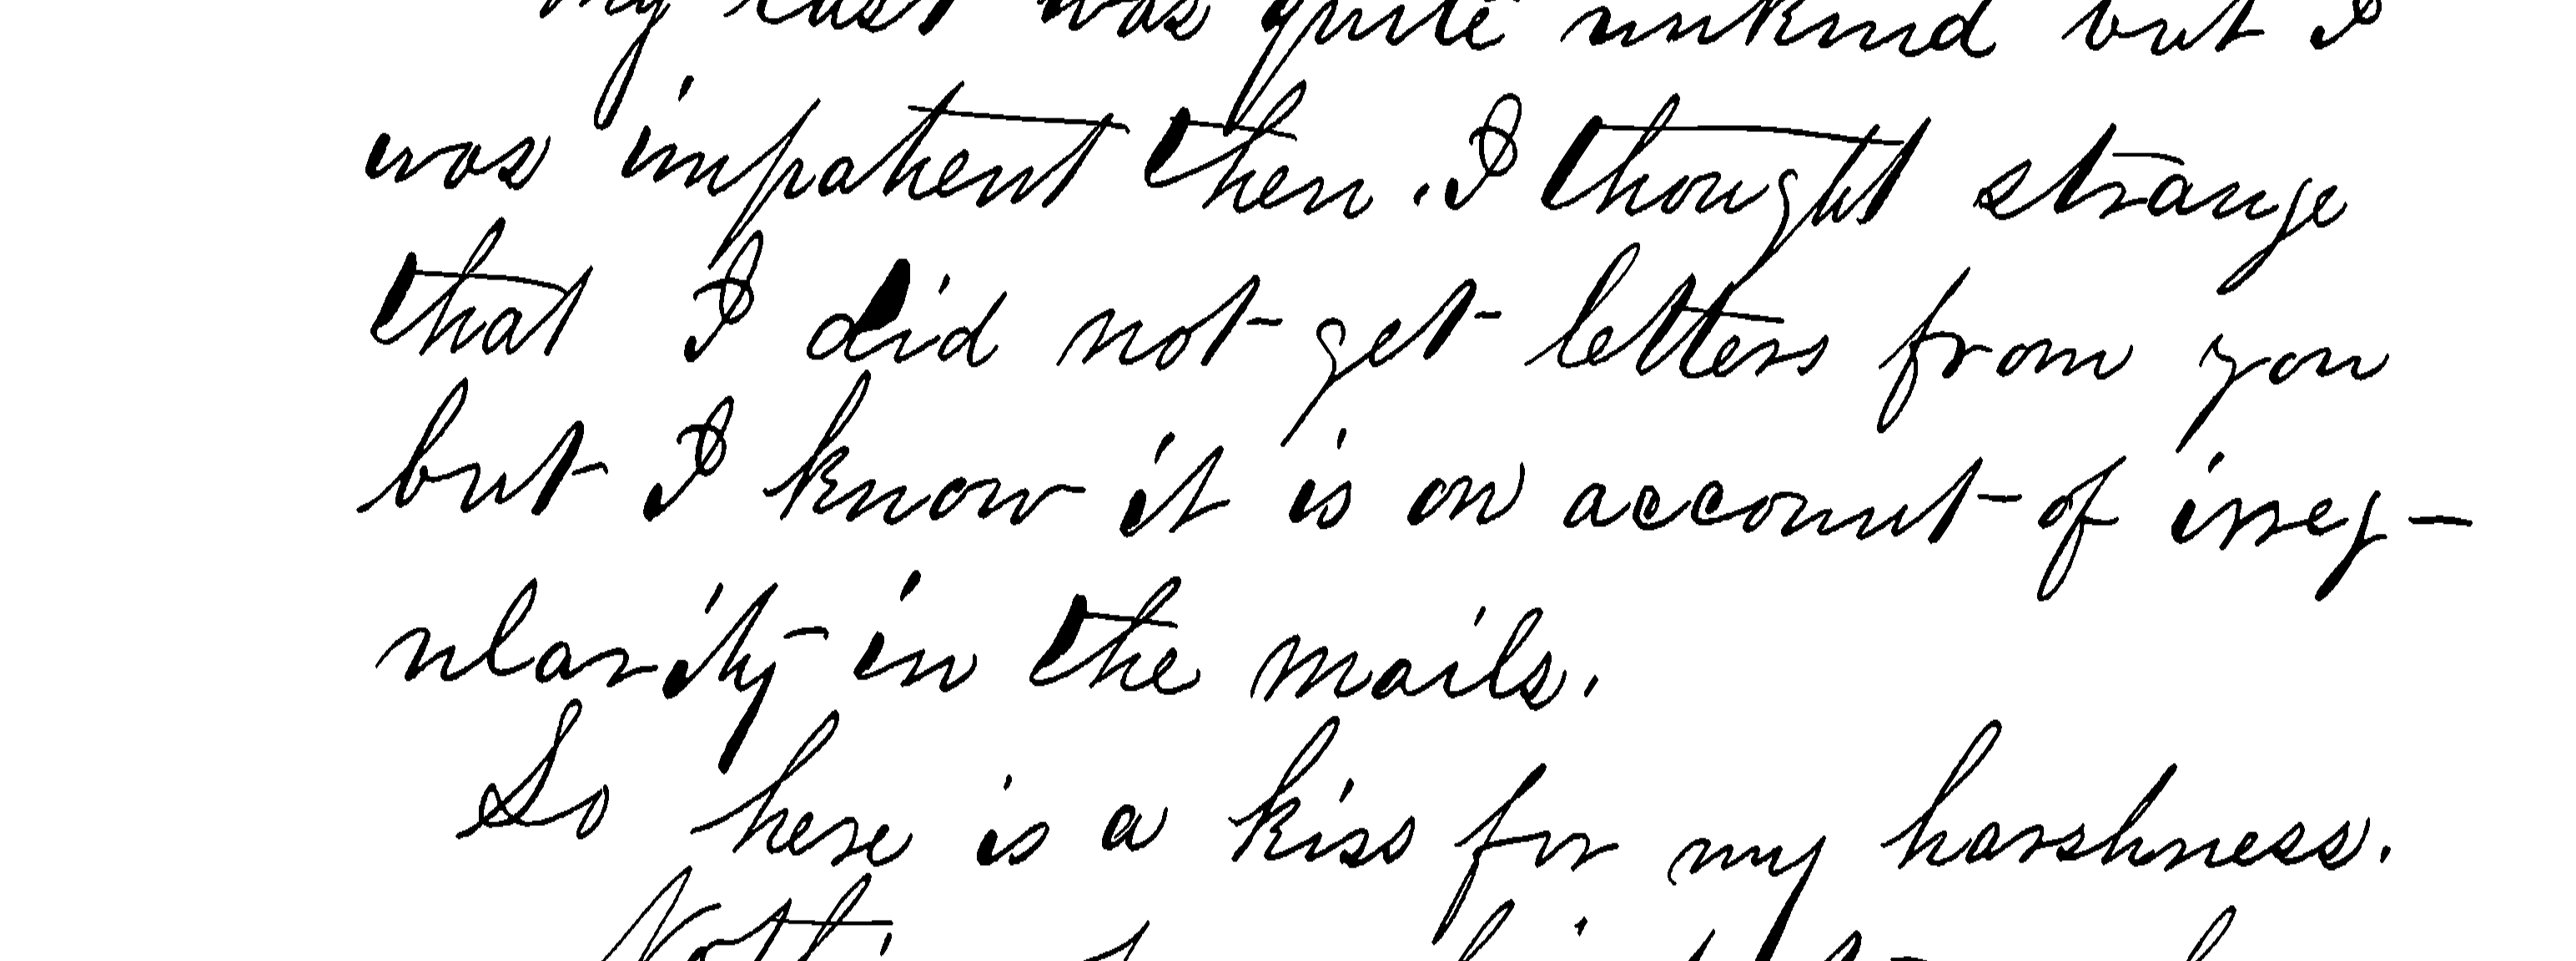 my last was quite unkind but I
was impatient then. I thought strange
that I did not get letters from you
but I know it is on account of irreg-
ularity in the mails.
So here is a kiss for my harshness.